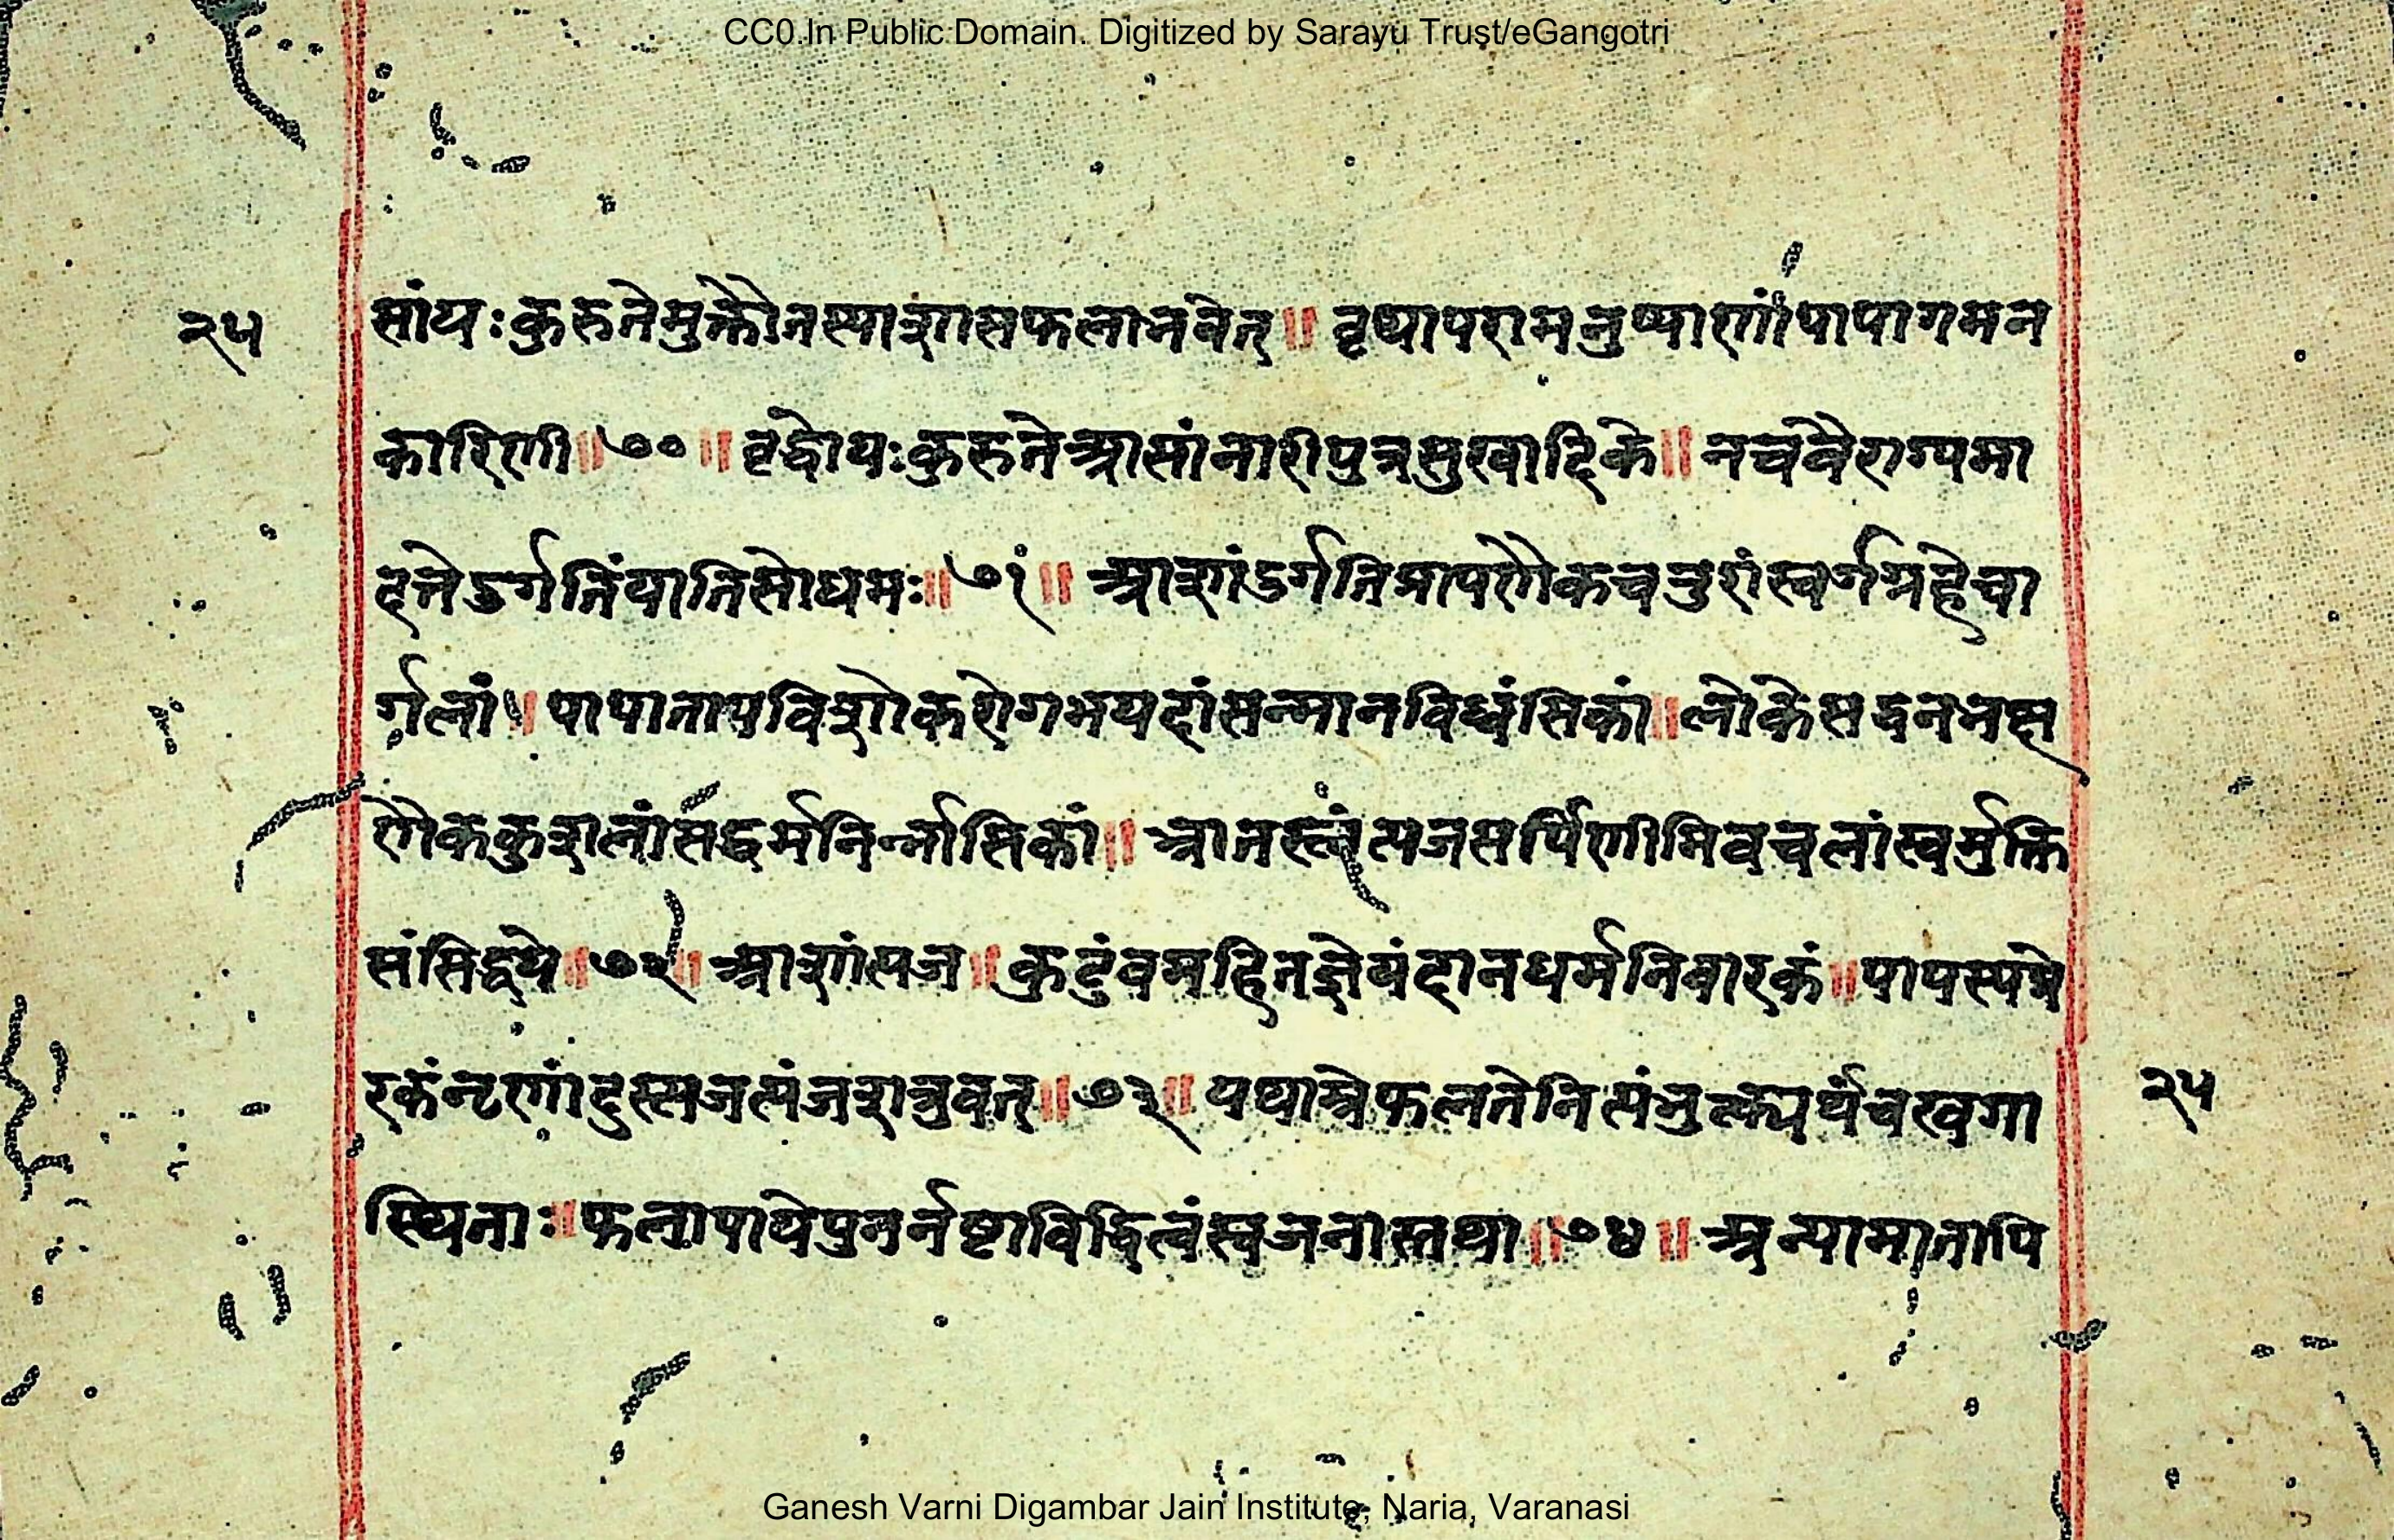 CC0.In Public Domain. Digitized by Sarayu Trust/eGangotri
२५
सांयःकुरुतेमुक्तौतस्याशासफलाभवेत्॥ वृथापरामनुष्याणांपापागमन
कारिणी॥७०॥ वृद्दोयःकुरुतेआसांनारीपुत्रसुखादिके॥ नचवैराग्यमा
दत्तेदुर्गतिंयातिसोधमः॥७१॥ आशांदुर्गतिप्रापणैकचतुरांस्वर्गग्रहेचा
र्गलां॥ पापातापविशोकरोगभयदांसन्मानविध्वंसिकां॥लोकेसद्वतभक्ष
णैककुशलांसद्धर्मनिर्नासिकां॥ भ्रातस्त्वंत्यजसर्पिणीमिवचलांस्वर्मुक्ति
संसिद्धये॥७२॥ आशांत्यज॥कुटुंबमहितज्ञेयंदानधर्मनिवारकं॥पापस्यप्रे
रकंनृणांदुस्त्यजत्यंजशत्रुवत्॥७३॥ यथाम्रेफलतेनित्यंभुक्त्यर्थंचखगा
स्थिताः॥फलापायेपुनर्नष्टाविद्धित्वंस्वजनास्तथा॥७४॥ अन्यामातापि
२५
Ganesh Varni Digambar Jain Institute, Naria, Varanasi